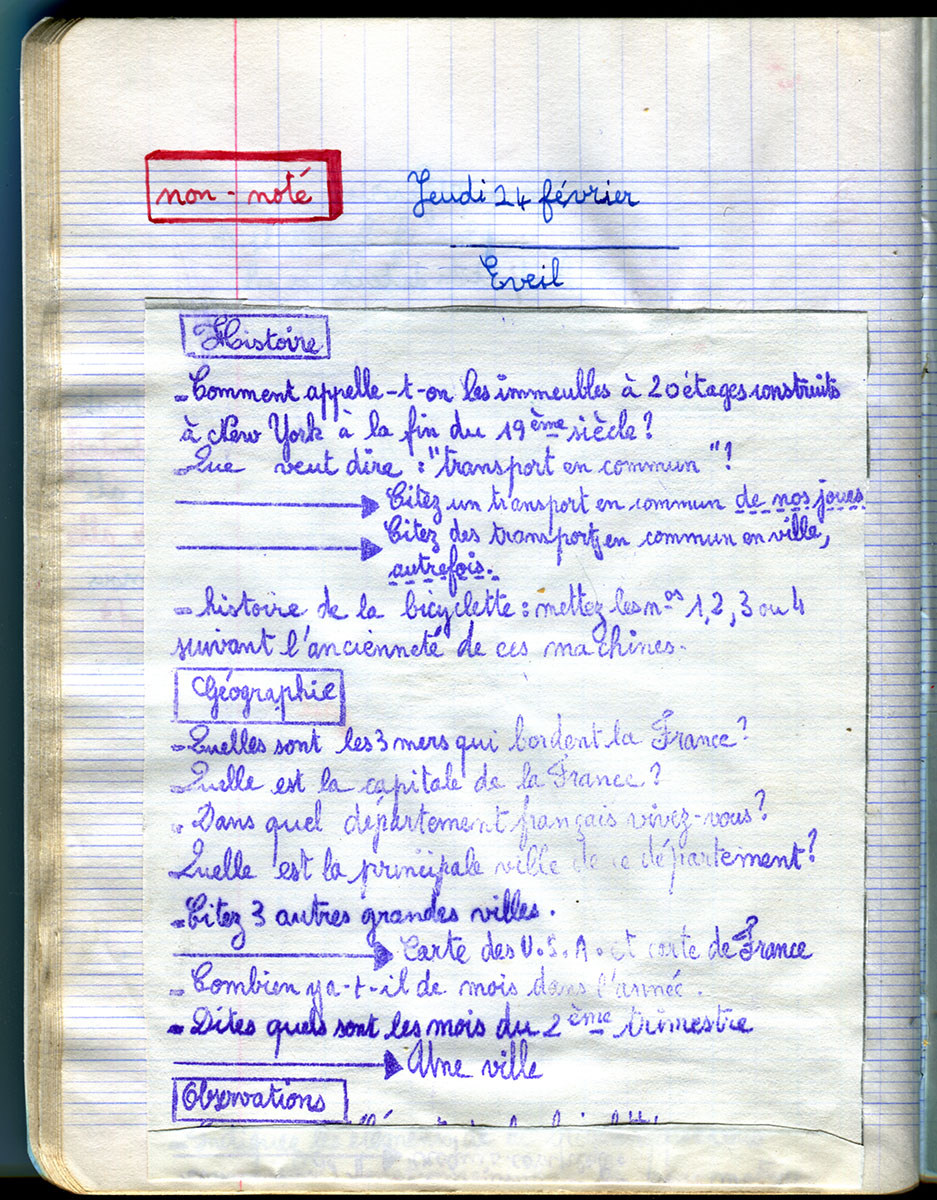 non-noté
Jeudi 24 février
Eveil
Histoire
- Comment appelle-t-on les immeubles à 20 étages construits
à New York à la fin du 19ème siècle?
- Que veut dire : "transport en commun"?
Citez un transport en commun de nos jours
Citez des transports en commun en ville,
autrefois.
- histoire de la bicyclette : mettez les nos 1, 2, 3 ou 4
suivant l'ancienneté de ces machines.
Géographie
- Quelles sont les 3 mers qui bordent la France?
- Quelle est la capitale de la France?
- Dans quel département français vivez-vous?
Quelle est la principale ville de ce département?
- Citez 3 autres grandes villes.
Carte des U.S.A. et carte de France
- Combien y a-t-il de mois dans l'année.
- Dites quels sont les mois du 2ème trimestre
Une ville
Observations